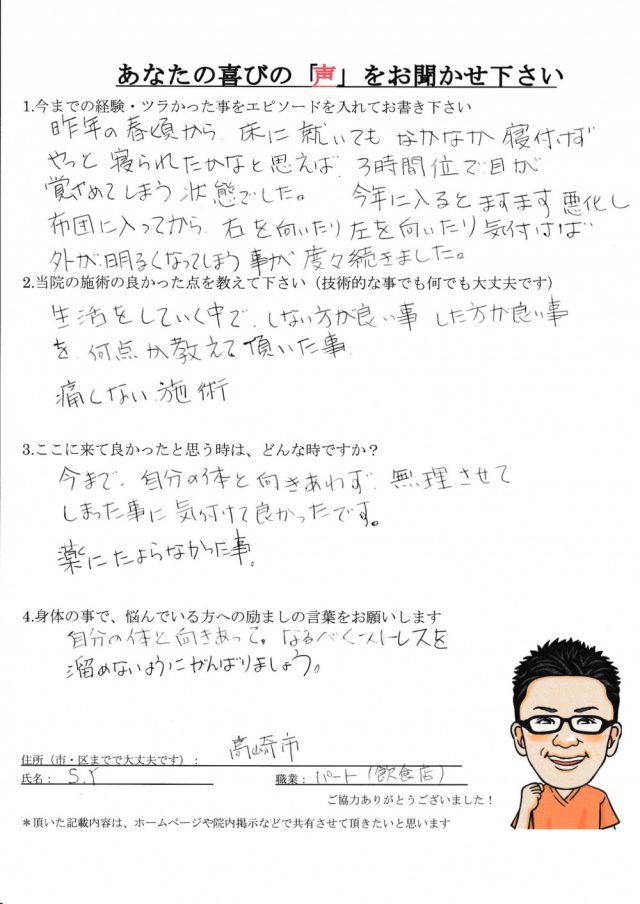 あなたの喜びの「声」をお聞かせ下さい
1.今までの経験・ツラかった事をエピソードを入れてお書き下さい
昨年の春頃から、床に就いてもなかなか寝付けず
やっと寝られたかなと思えば、3時間位で目が
覚めてしまう状態でした。 今年に入るとますます悪化し
布団に入ってから、右を向いたり左を向いたり気付けば
外が明るくなってしまう事が度々続きました。
2.当院の施術の良かった点を教えて下さい（技術的な事でも何でも大丈夫です）
生活をしていく中で、しない方が良い事 した方が良い事
を、何点か教えて頂いた事、
痛くない施術
3.ここに来て良かったと思う時は、どんな時ですか？
今まで、自分の体と向きあわず、無理させて
しまった事に気付けて良かったです。
薬にたよらなかった事、
4.身体の事で、悩んでいる方への励ましの言葉をお願いします
自分の体と向きあって。なるべくストレスを
溜めないようにがんばりましょう。
住所（市・区までで大丈夫です）： 高崎市
氏名： S.Y 職業： パート（飲食店）
ご協力ありがとうございました！
＊頂いた記載内容は、ホームページや院内掲示などで共有させて頂きたいと思います